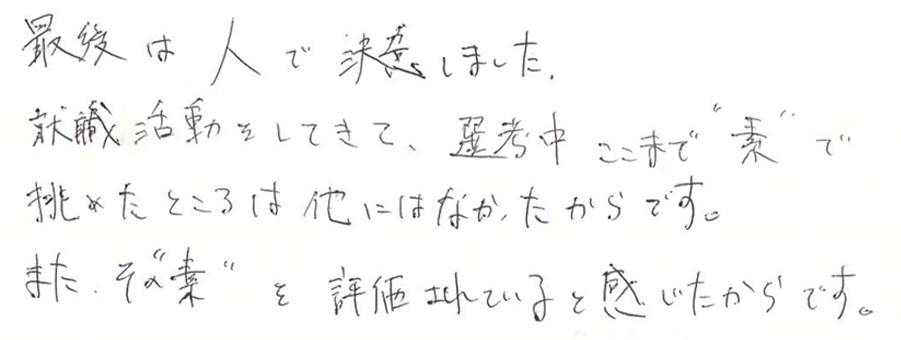 最後は人で決意しました.
就職活動をしてきて、選考中ここまで“素”で
挑めたところは他にはなかったからです。
また、その“素”を評価されていると感じたからです。